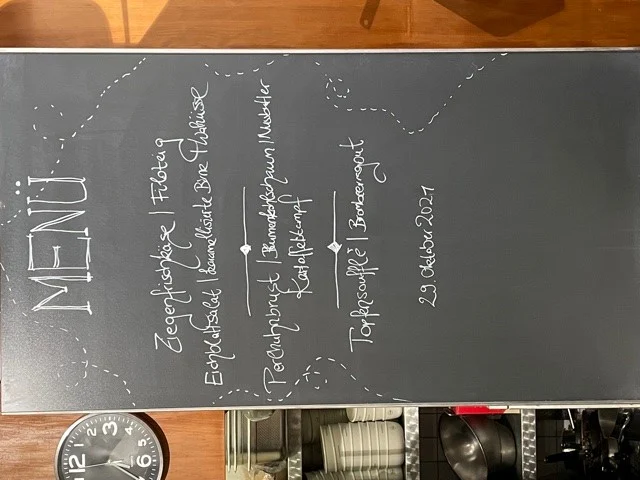 MENÜ
Ziegenfrischkäse | Filoteig
Eichblattsalat | karamellisierte Birne | Walnüsse
Perlhuhnbrust | Blumenkohlschaum | Nussbutter
Kartoffelstampf
Topfensoufflé | Brombeerragout
29. Oktober 2021
12
3
5
6